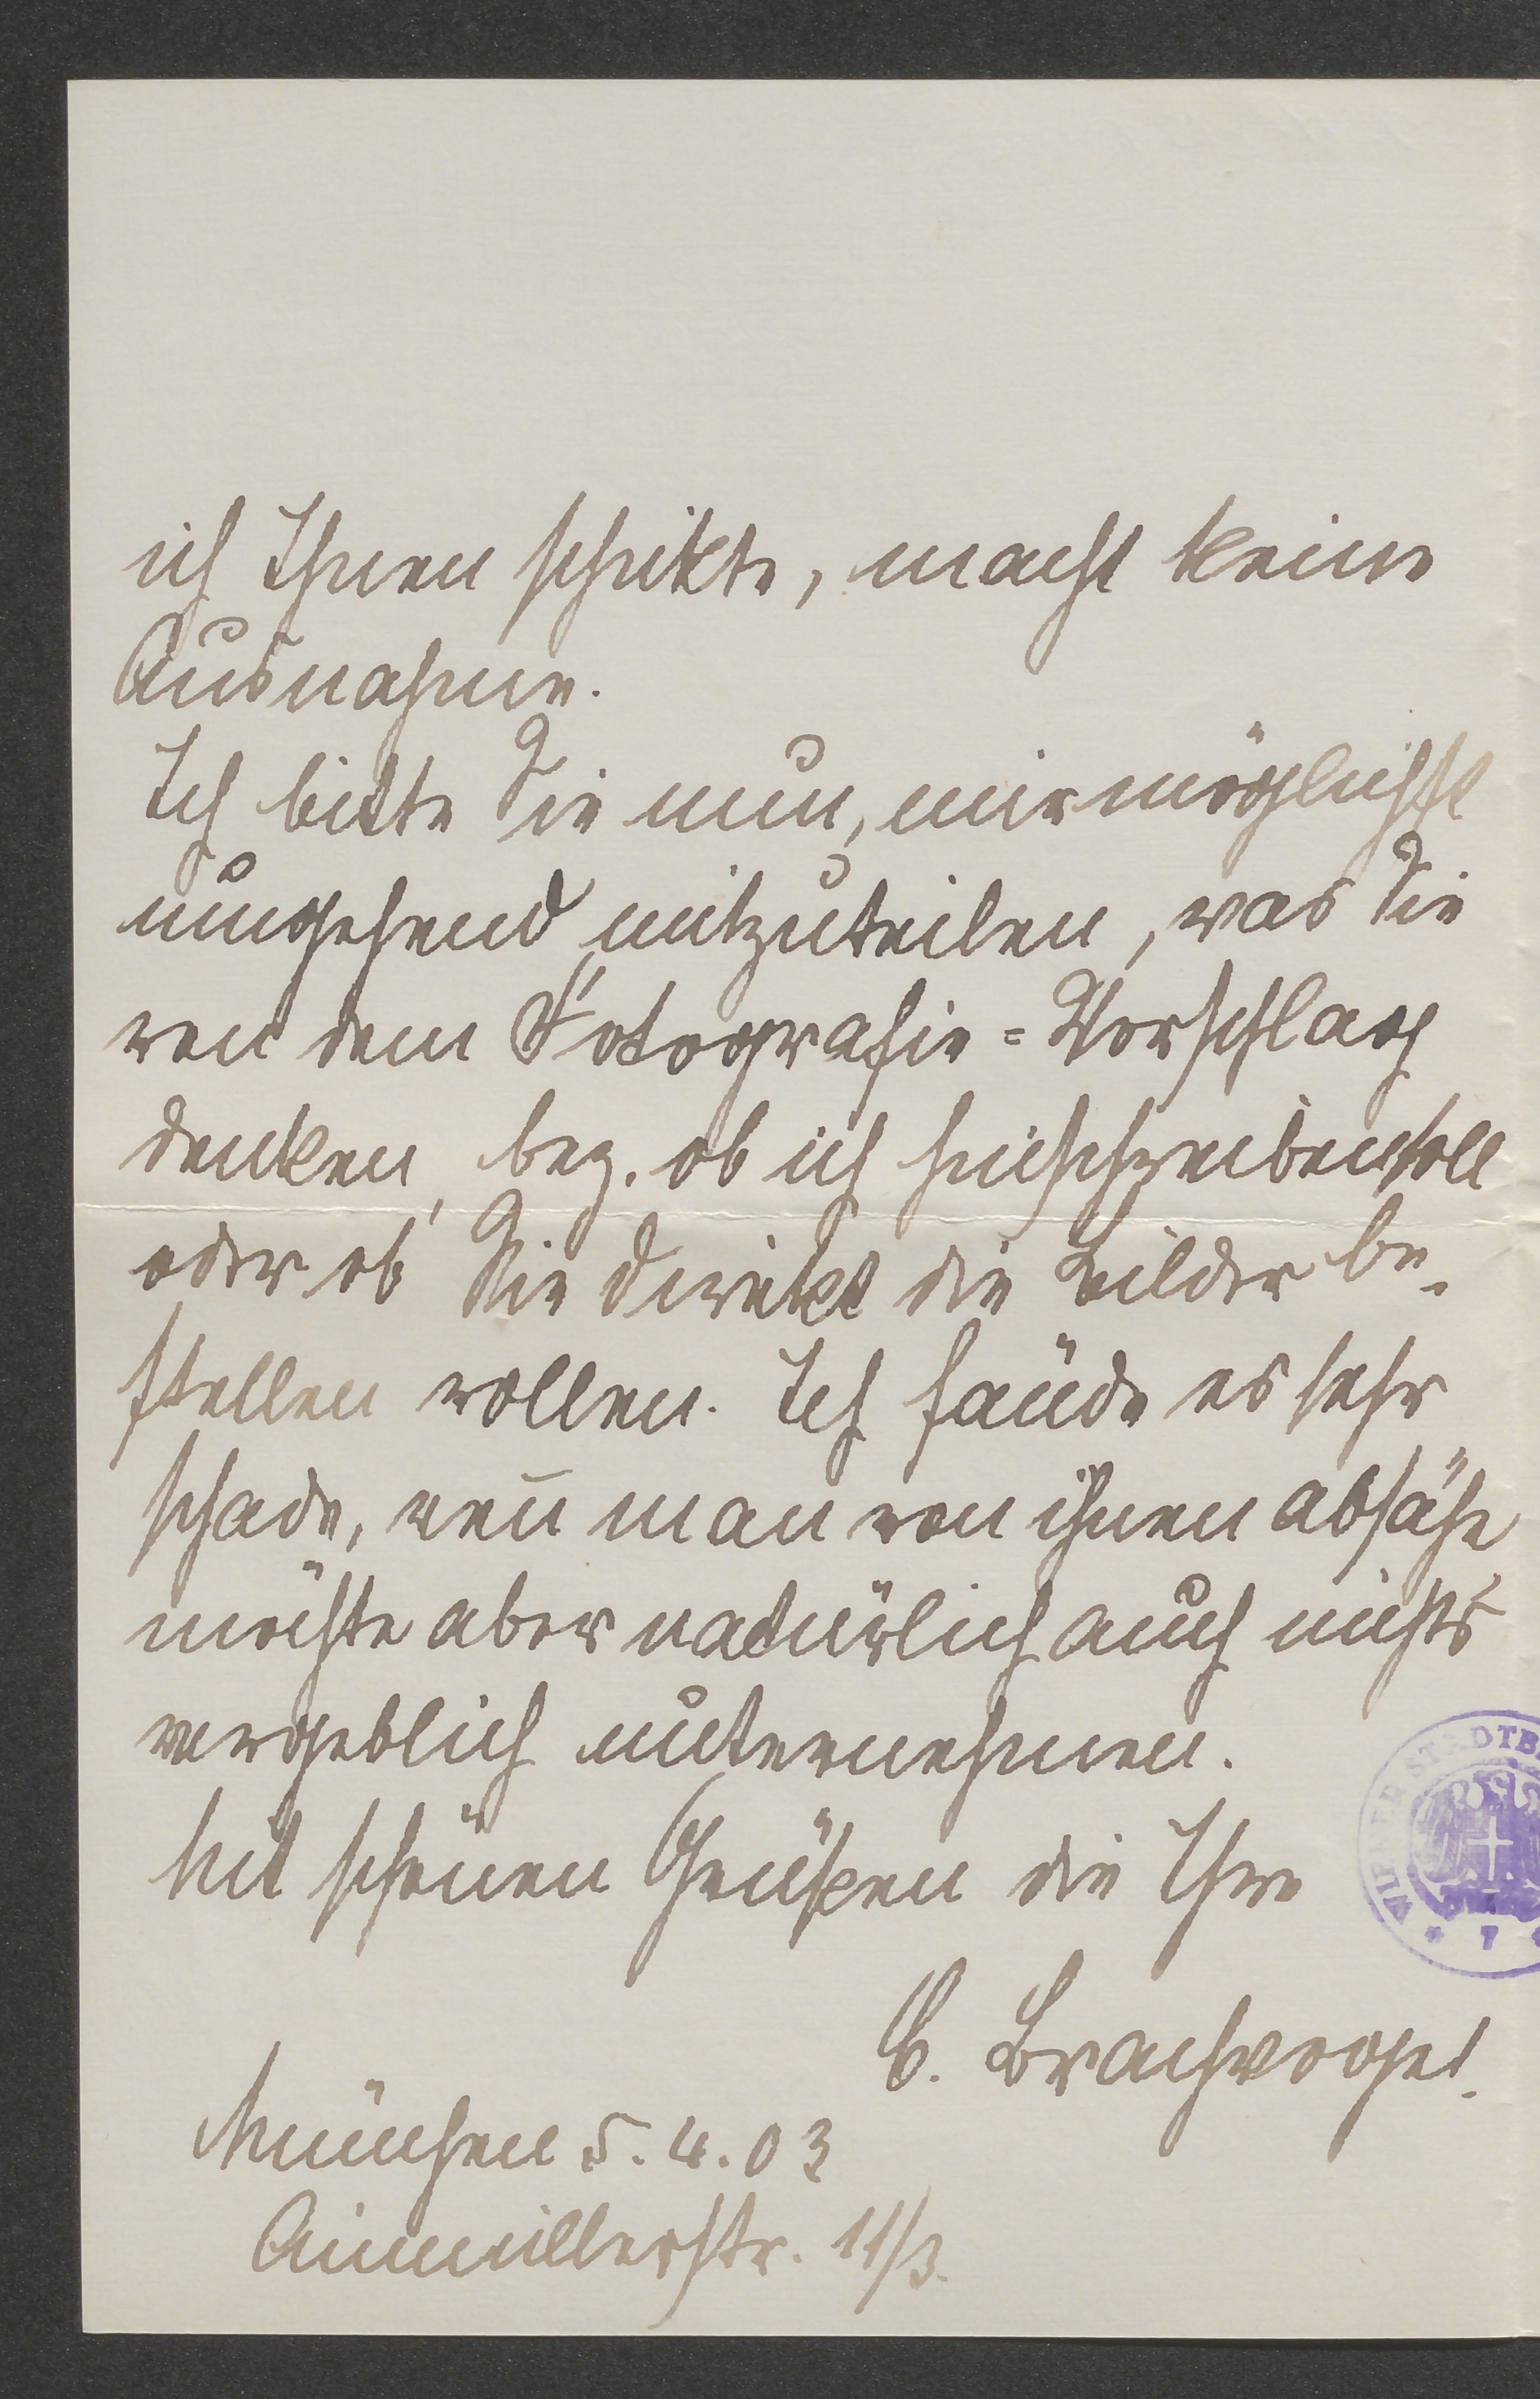 ich Ihnen schikte, macht keine
Ausnahme.
Ich bitte Sie nun, mir möglichst
umgehend mitzuteilen, was Sie
von dem Fotografie=Vorschlag
denken, bez. ob ich hinschreiben soll
oder ob Sie direkt die Bilder be-
stellen wollen. Ich fände es sehr
schade, weñ man von ihnen absähe
möchte aber natürlich auch nichts
vergeblich unternehmen.
Mit schönen Grüßen die Ihre
C. Brachvogel.
München 5. 4. 03
Ainmillerstr. 11/3.
WIENER STADTB
* 7 *